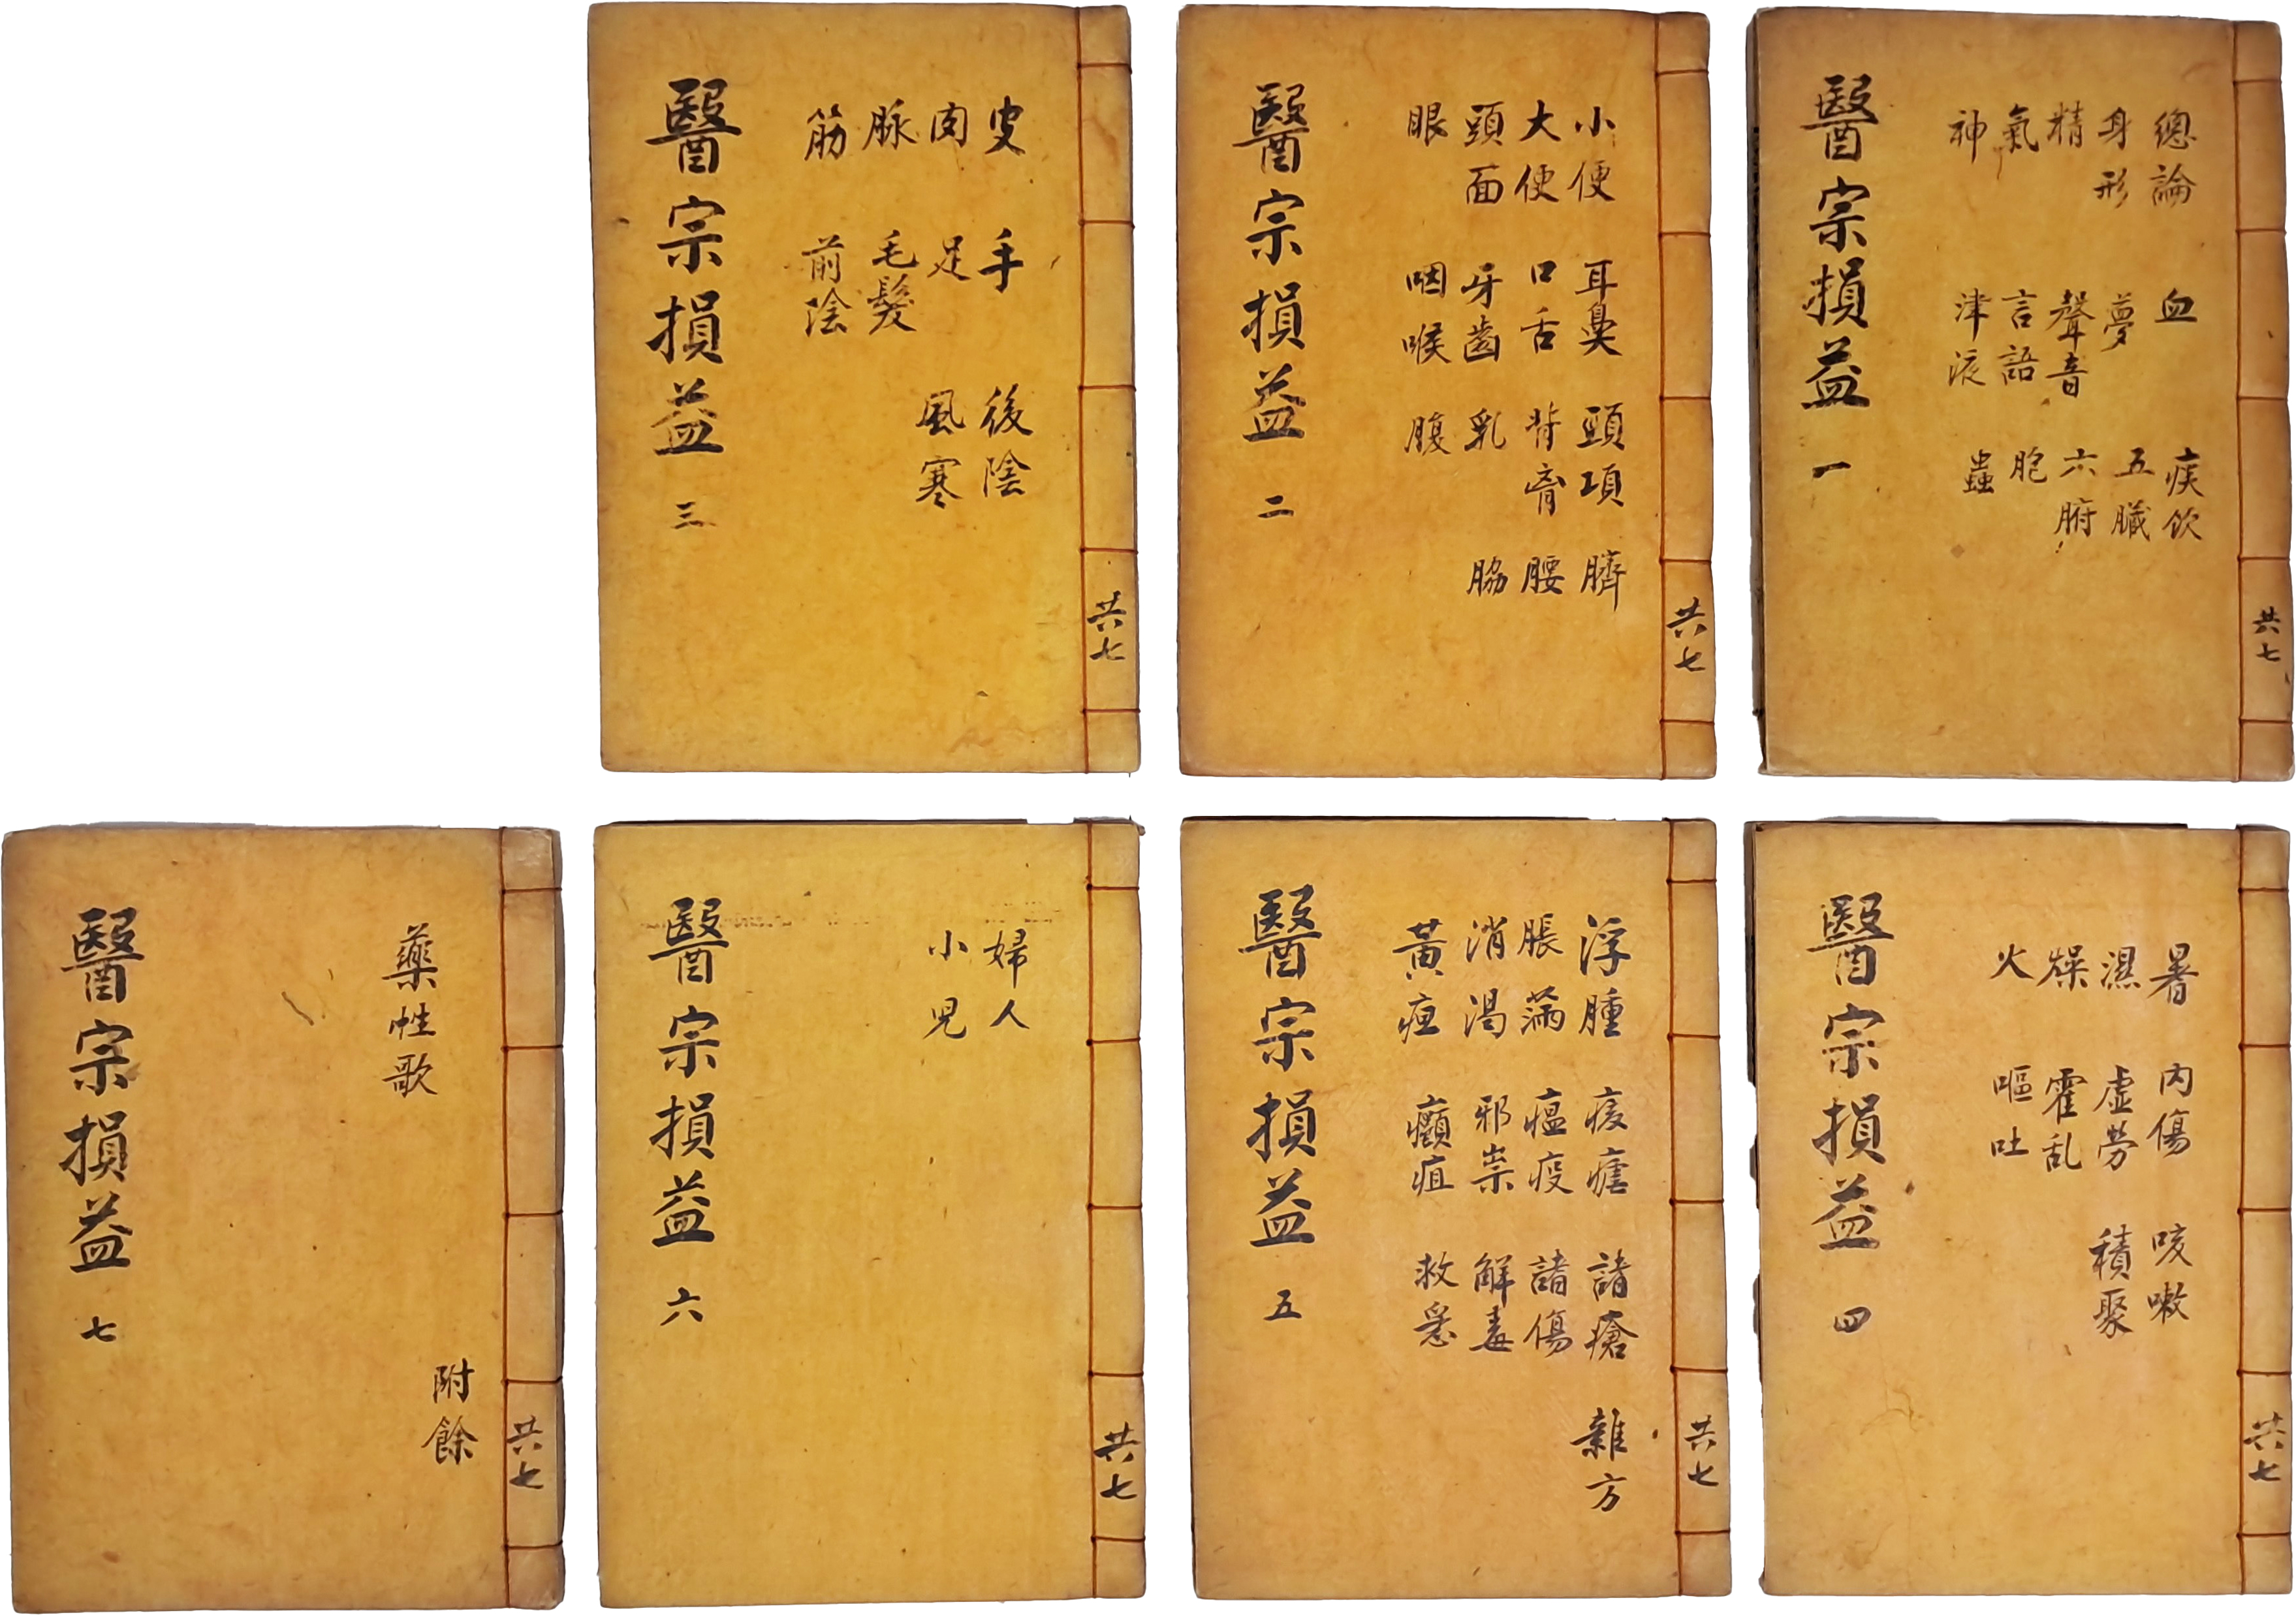 共七
總論 血 痰飮
身形 夢 五臟
精 聲音 六腑
氣 言語 胞
神 津液 蟲
醫宗損益 一
共七
小便 耳鼻 頸項 臍
大便 口舌 背胷 腰
頭面 牙齒 乳 脇
眼 咽喉 腹
醫宗損益 二
共七
皮 手 後陰
肉 足 風寒
脉 毛髮
筋 前陰
醫宗損益 三
共七
暑 內傷 咳嗽
濕 虛勞 積聚
燥 霍乱
火 嘔吐
醫宗損益 四
共七
浮腫 痎瘧 諸瘡 雜方
脹滿 瘟疫 諸傷
消渴 邪祟 解毒
黃疸 癰疽 救急
醫宗損益 五
共七
婦人
小児
醫宗損益 六
共七
附餘
藥性歌
醫宗損益 七